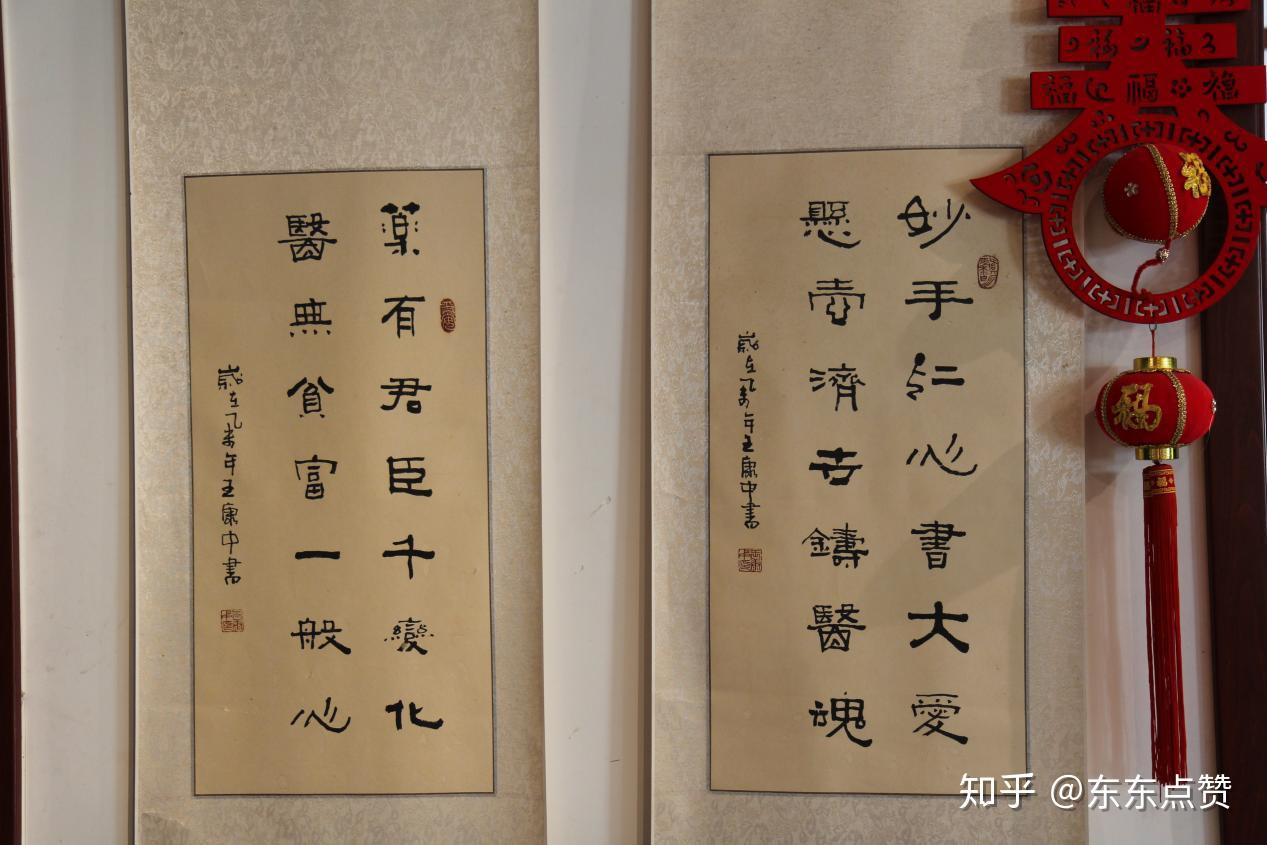 妙手仁心書大愛
懸壺濟世鑄醫魂
歲在乙未年王康中書
藥有君臣千變化
醫無貧富一般心
歲在乙未年王康中書
福
福
福 福 福
福
福
知乎 @东东点赞